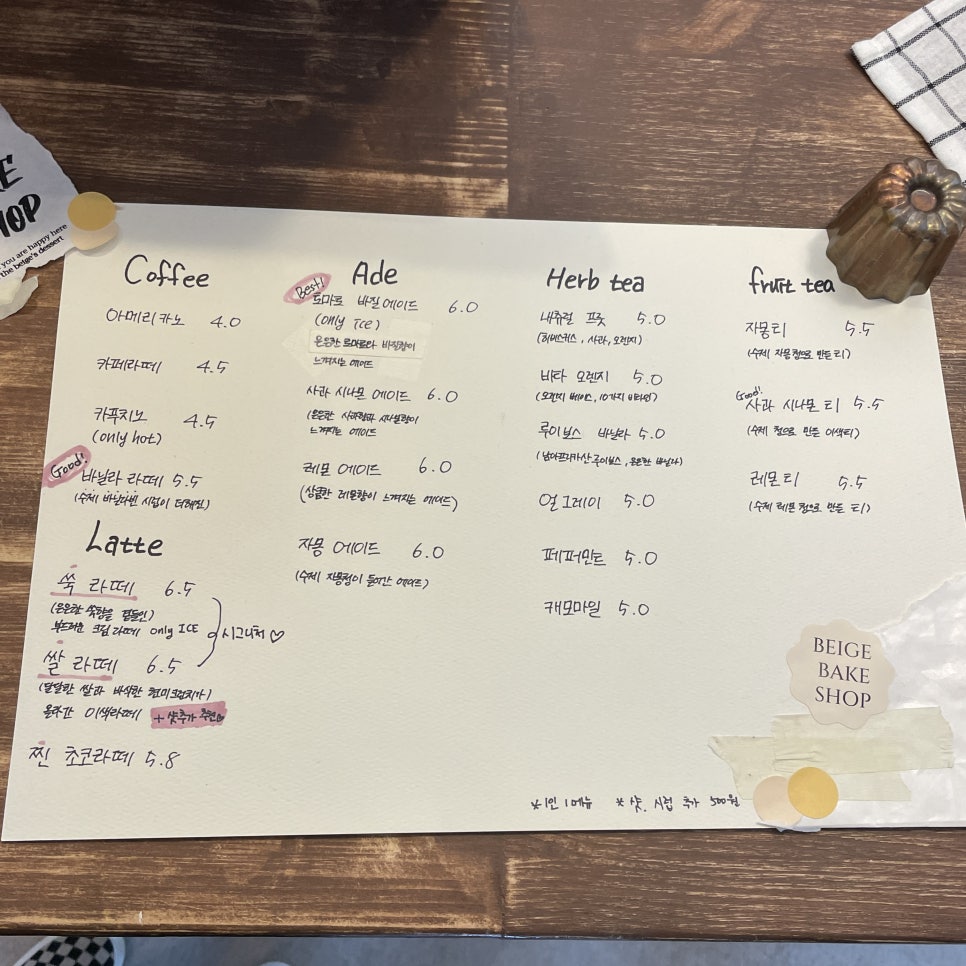 HOP
you are happy here
the beige's dessert
Coffee
아메리카노 4.0
카페라떼 4.5
카푸치노 4.5
(only hot)
Good!
바닐라 라떼 5.5
(수제 바닐라빈 시럽이 더해진)
Latte
쑥 라떼 6.5
(은은한 쑥향을 힘들인)
부드러운 크림라떼 only ICE
시그니처♡
쌀 라떼 6.5
(달달한 쌀과 바삭한 현미크런치가)
올라간 이색라떼 +샷추가 추천
찐 초코라떼 5.8
Ade
Best!
토마토 바질에이드 6.0
(only Ice)
은은한 토마토와 바질향이
느껴지는 에이드
사과 시나몬 에이드 6.0
(은은한 사과향과 시나몬향이
느껴지는 에이드
레몬 에이드 6.0
(상큼한 레몬향이 느껴지는 에이드)
자몽 에이드 6.0
(수제 자몽청이 들어간 에이드)
Herb tea
내츄럴 프룻 5.0
(히비스커스, 사과, 오렌지)
비타 오렌지 5.0
(오렌지 베이스, 10가지 비타민)
루이보스 바닐라 5.0
(남아프리카산 루이보스, 은은한 바닐라)
얼그레이 5.0
페퍼민트 5.0
캐모마일 5.0
fruit tea
자몽티 5.5
(수제 자몽청으로 만든 티)
Good!
사과 시나몬 티 5.5
(수제 청으로 만든 이색티)
레몬티 5.5
(수제 레몬청으로 만든 티)
BEIGE
BAKE
SHOP
*1인 1메뉴 *샷, 시럽 추가 500원